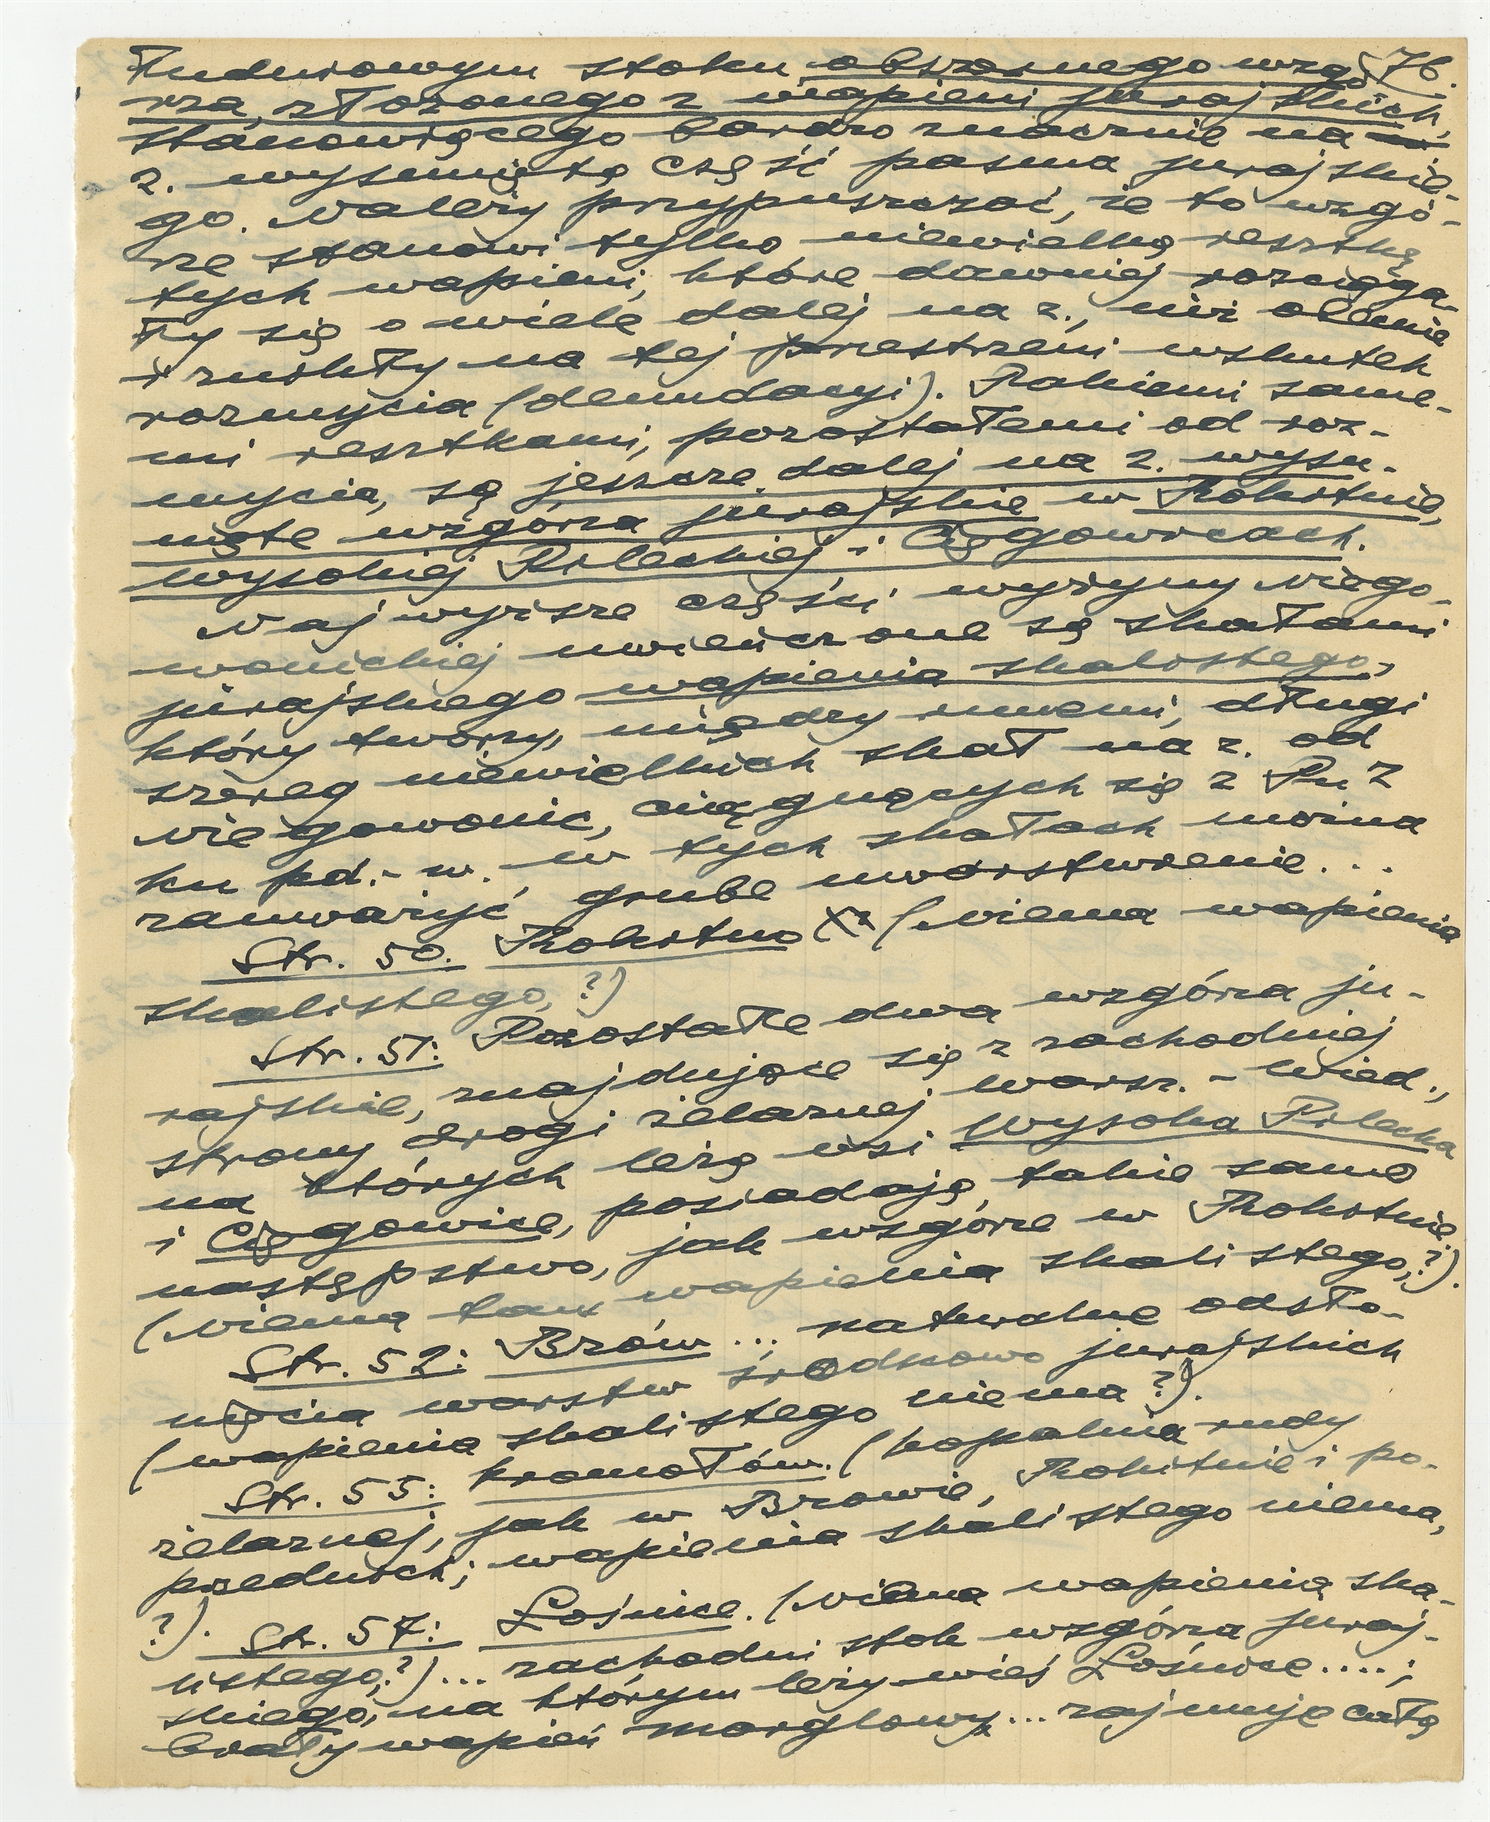 łudniowym stoku obszernego wzgó 76.
rza, złożonego z wapieni jurajskich,
stanowiącego bardzo znacznie na
z. wysuniętą część pasma jurajskie-
go. Należy przypuszczać, że to wzgó-
rze stanowi tylko niewielką resztkę
tych wapieni, które dawniej rozciąga-
ły się o wiele dalej na z., niż obecnie
i znikły na tej przestrzeni wskutek
rozmycia (denudacyi). Takiemi same-
mi resztkami, pozostałemi od roz-
mycia, są jeszcze dalej na z. wysu-
nięte wzgórza jurajskie w Rokitnie,
Wysokiej Pileckiej i Ciągowicach.
Najwyższe części wyżyny Niego-
wonickiej uwieńczone są skałami
jurajskiego wapienia skalistego,
który tworzy, między innemi, długi
szereg niewielkich skał na z. od
Niegowonic, ciągnących się z PnZ
ku pd.-w. W tych skałach można
zauważyć grube uwarstwienie...
Str. 50. Rokitno (Niema wapienia
skalistego,?)
Str. 51: Pozostałe dwa wzgórza ju-
rajskie, znajdujące się z zachodniej
strony drogi żelaznej Warsz.-Wied.,
na których leżą wsi Wysoka Pilecka
i Ciągowice, posiadają takie samo
następstwo, jak wzgórze w Rokitnie.
(Niema tam wapienia skalistego,?).
Str. 52: Brów... naturalne odsło-
nięcia warstw środkowo jurajskich
(wapienia skalistego niema?).
Str. 55: Kromołów. (kopalnia rudy
żelaznej, jak w Browie, Rokitnie i po-
przednich; wapienia skalistego niema,
?).
Str. 57: Łośnice. (Niema wapienia ska-
listego,?)... zachodni stok wzgórza juraj-
skiego, na którym leży wieś Łośnice....;
biały wapień marglowy... zajmuje całą